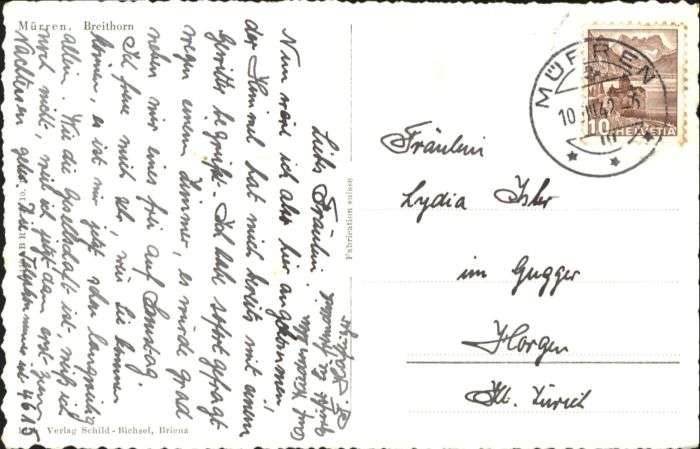 Mürren. Breithorn
Liebes Fräulein!
Nun wäre ich also hier angekommen
der Himmel hat mich bereits mit einem
Gewitter begrüßt. Ich habe sofort gefragt
wegen einem Zimmer, es würde grad
neben mir eines frei auf Samstag
Ich freue mich sehr, wenn Sie kommen
können, es ist mir jetzt schon langweilig
allein. Wie die Gesellschaft ist, weiß ich
noch nicht, weil ich jetzt dann erst zum
Nachtessen gehe. Die Telephonnummer ist 4615
Fabrication suisse
Verlag Schild-Bichsel, Brienz
MÜRREN
10
10 HELVETIA
Fräulein
Lydia Isler
im Gugger
Horgen
Kt. Zürich